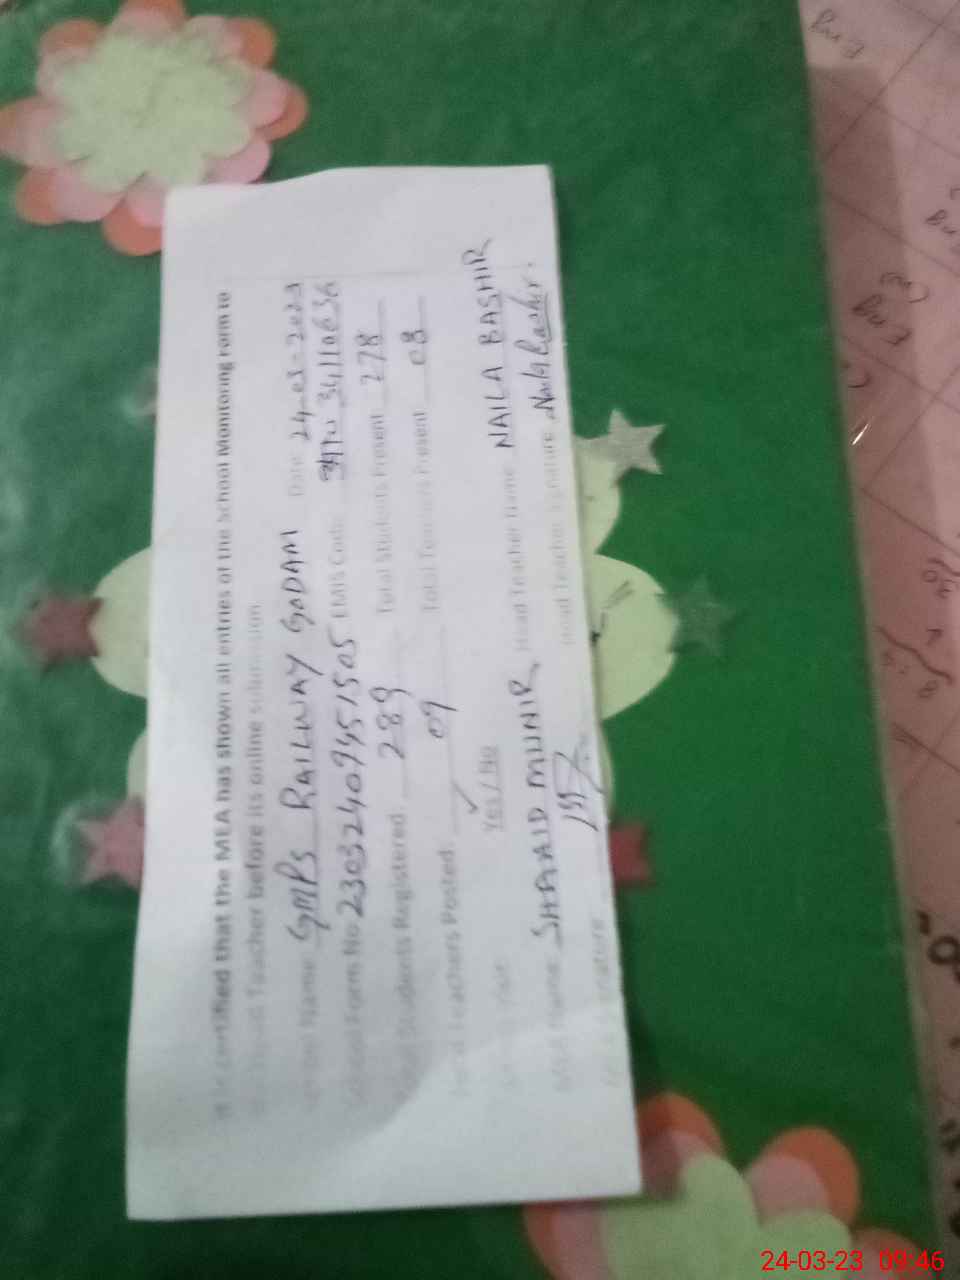 It is certified that the MEA has shown all entries of the School Monitoring Form to
Head Teacher before its online submission.
School Name GMPS RAILWAY GODAM Date 24-03-2023
School Form No 23032409451505 EMIS Code 34110636
Total Students Registered 289 Total Students Present 278
Total Teachers Posted 09 Total Teachers Present 08
Yes / No
MEA Name SHAAID MUNIR Head Teacher Name NAILA BASHIR
MEA Signature Head Teacher Signature Naila Bashir.
24-03-23 09:46